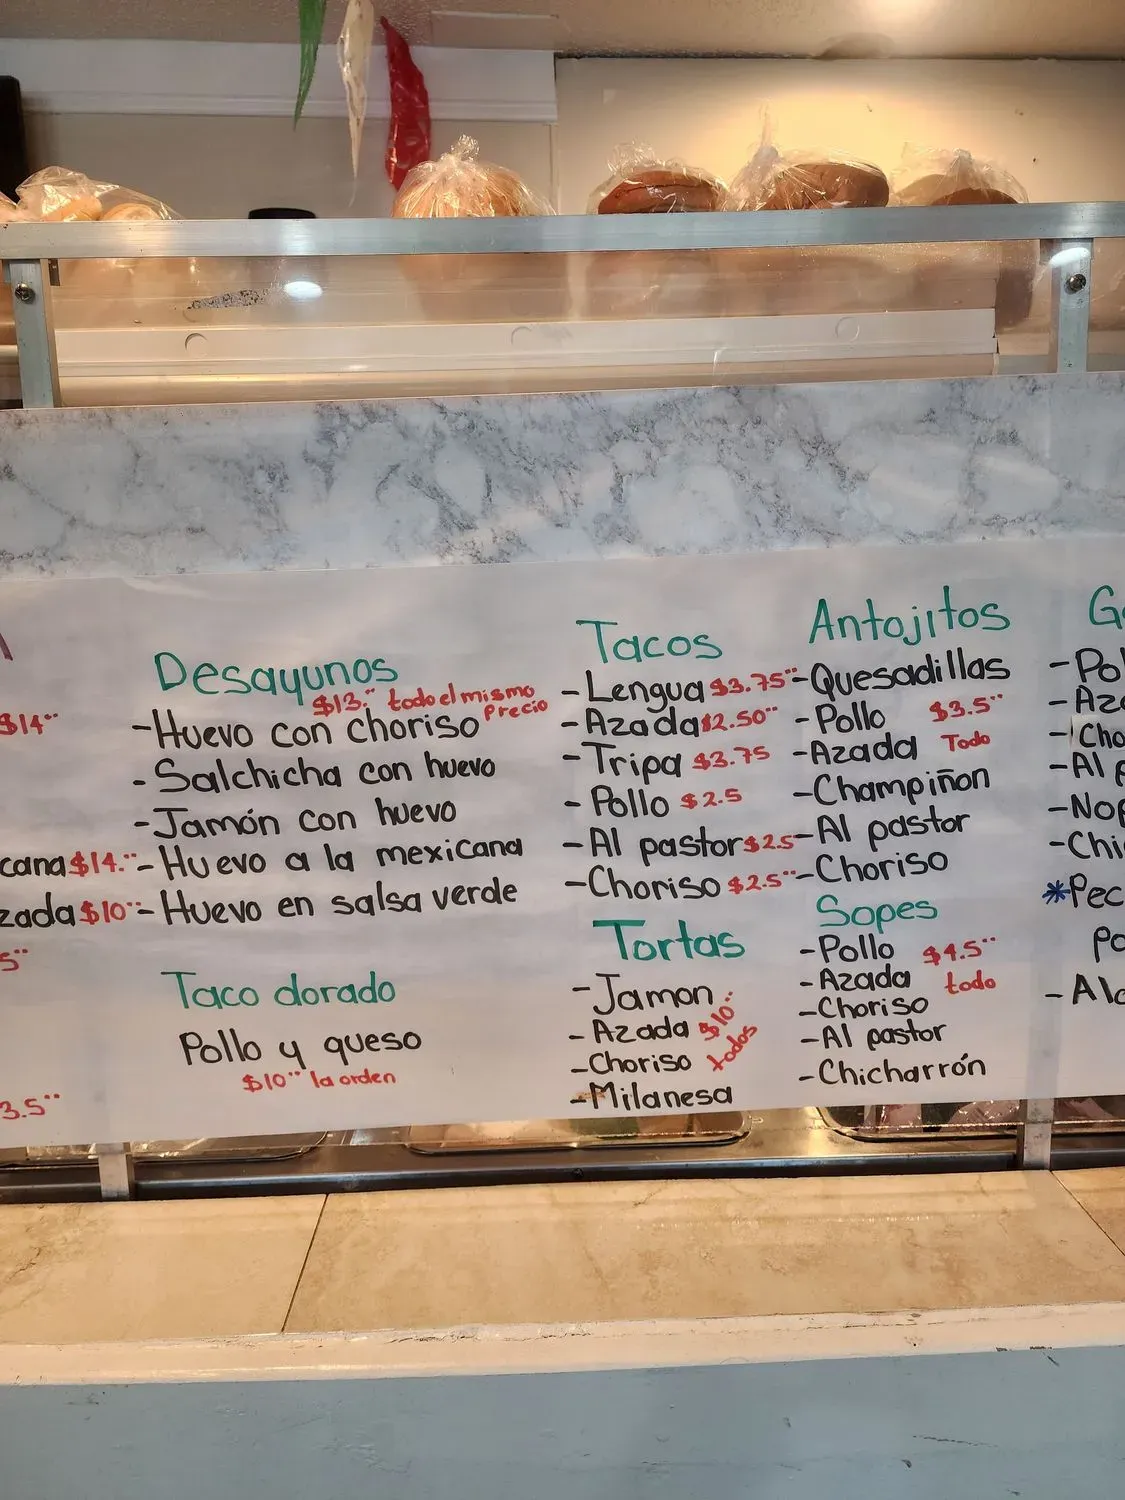 $14
cana $14.
zada $10
5
3.5
Desayunos
$13. todo el mismo
Precio
-Huevo con choriso
-Salchicha con huevo
-Jamón con huevo
-Huevo a la mexicana
-Huevo en salsa verde
Taco dorado
Pollo y queso
$10 la orden
Tacos
-Lengua $3.75
-Azada $2.50
-Tripa $3.75
-Pollo $2.5
-Al pastor $2.5
-Choriso $2.5
Tortas
-Jamon
-Azada $10
-Choriso todos
-Milanesa
Antojitos
-Quesadillas
-Pollo $3.5
-Azada Todo
-Champiñon
-Al pastor
-Choriso
Sopes
-Pollo $4.5
-Azada todo
-Choriso
-Al pastor
-Chicharrón
G
-Pol
-Aza
-Cho
-Al p
-Nop
-Chi
*Pec
po
-Al